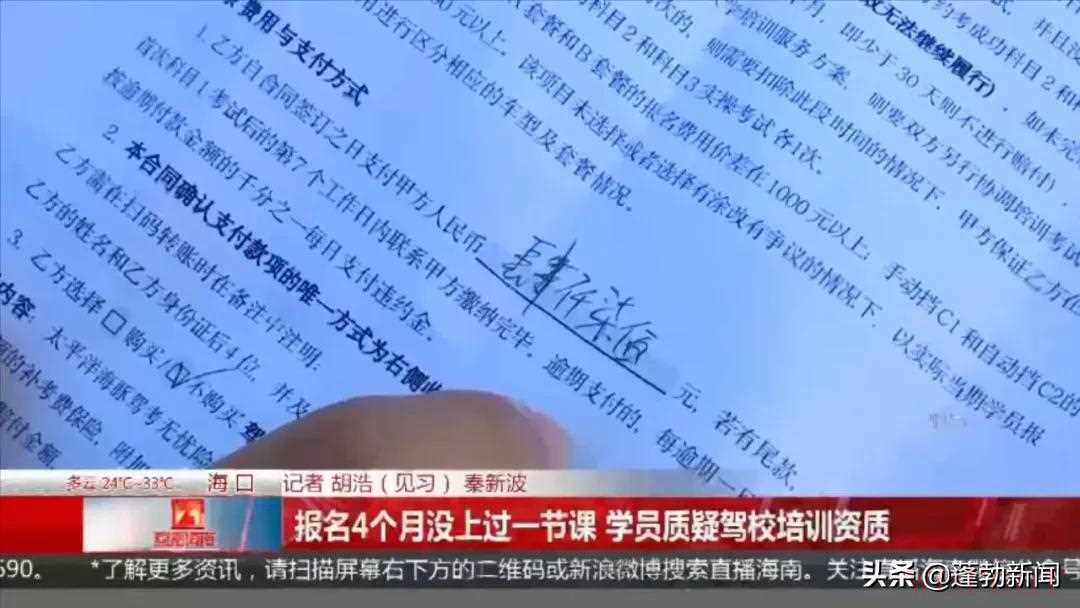 并且没
约考成功科目2和科
效无法继续履行），如未完
月，即少于30天则不进行赔付），
学培训服务方案，则要双方另行协调培训考试
次的，则需要扣除此段时间的情况下，甲方保证乙方在
科目2和科目3实操考试各1次。
套餐和B套餐的报名费用价差在1000元以上；手动挡C1和自动挡C2的
元以上，该项目未选择或者选择有涂改有争议的情况下，以实际当期学员报
用进行区分相应的车型及套餐情况。
费用与支付方式
1. 乙方自合同签订之日支付甲方人民币 肆仟柒佰 元，若有尾款，
首次科目1考试后的第7个工作日内联系甲方缴纳完毕。逾期支付的，每逾期一
按逾期付款金额的千分之一每日支付违约金。
2. 本合同确认支付款项的唯一方式为右侧
乙方需在扫码转账时在备注中注明：
乙方的姓名和乙方身份证后4位，并及
3. 乙方选择□购买/☑不购买 驾
内容：太平洋海豚驾考无忧险
的补考费保险，附加
赔付金额
多云 24℃~33℃ 海口 记者 胡浩（见习） 秦新波
报名4个月没上过一节课 学员质疑驾校培训资质
590。 *了解更多资讯，请扫描屏幕右下方的二维码或新浪微博搜索直播海南。关注
头条 @蓬勃新闻